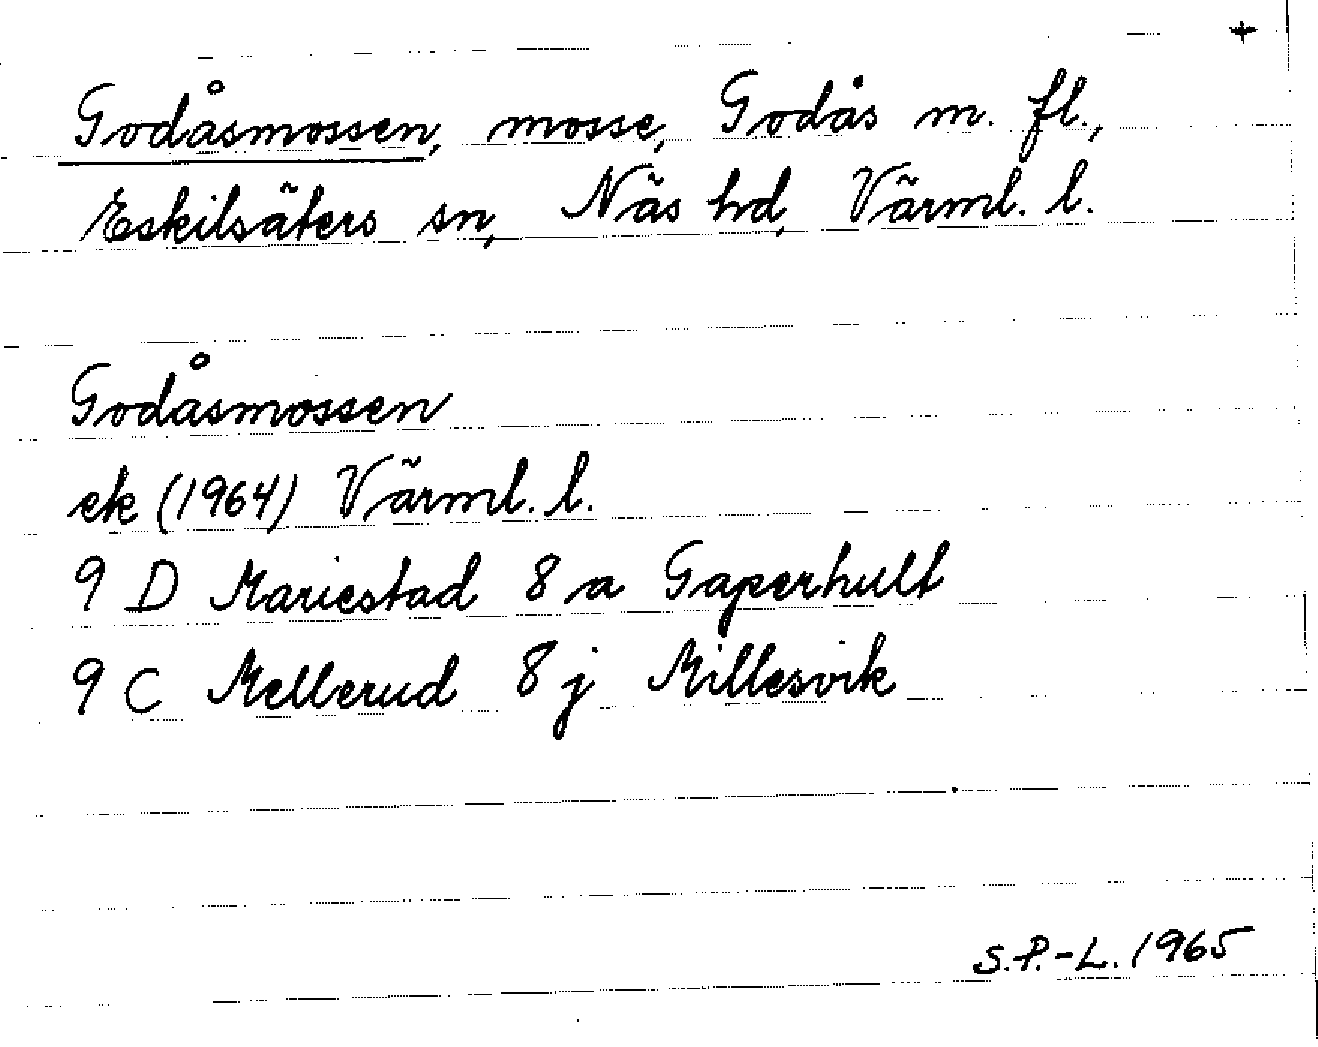 Godåsmossen, mosse, Godås m. fl.,
Eskilsäters sn, Näs hd, Värml. l.
Godåsmossen
ek (1964) Värml. l.
9 D Mariestad 8 a Gaperhult
9 C Mellerud 8 j Millesvik
S.P.-L. 1965